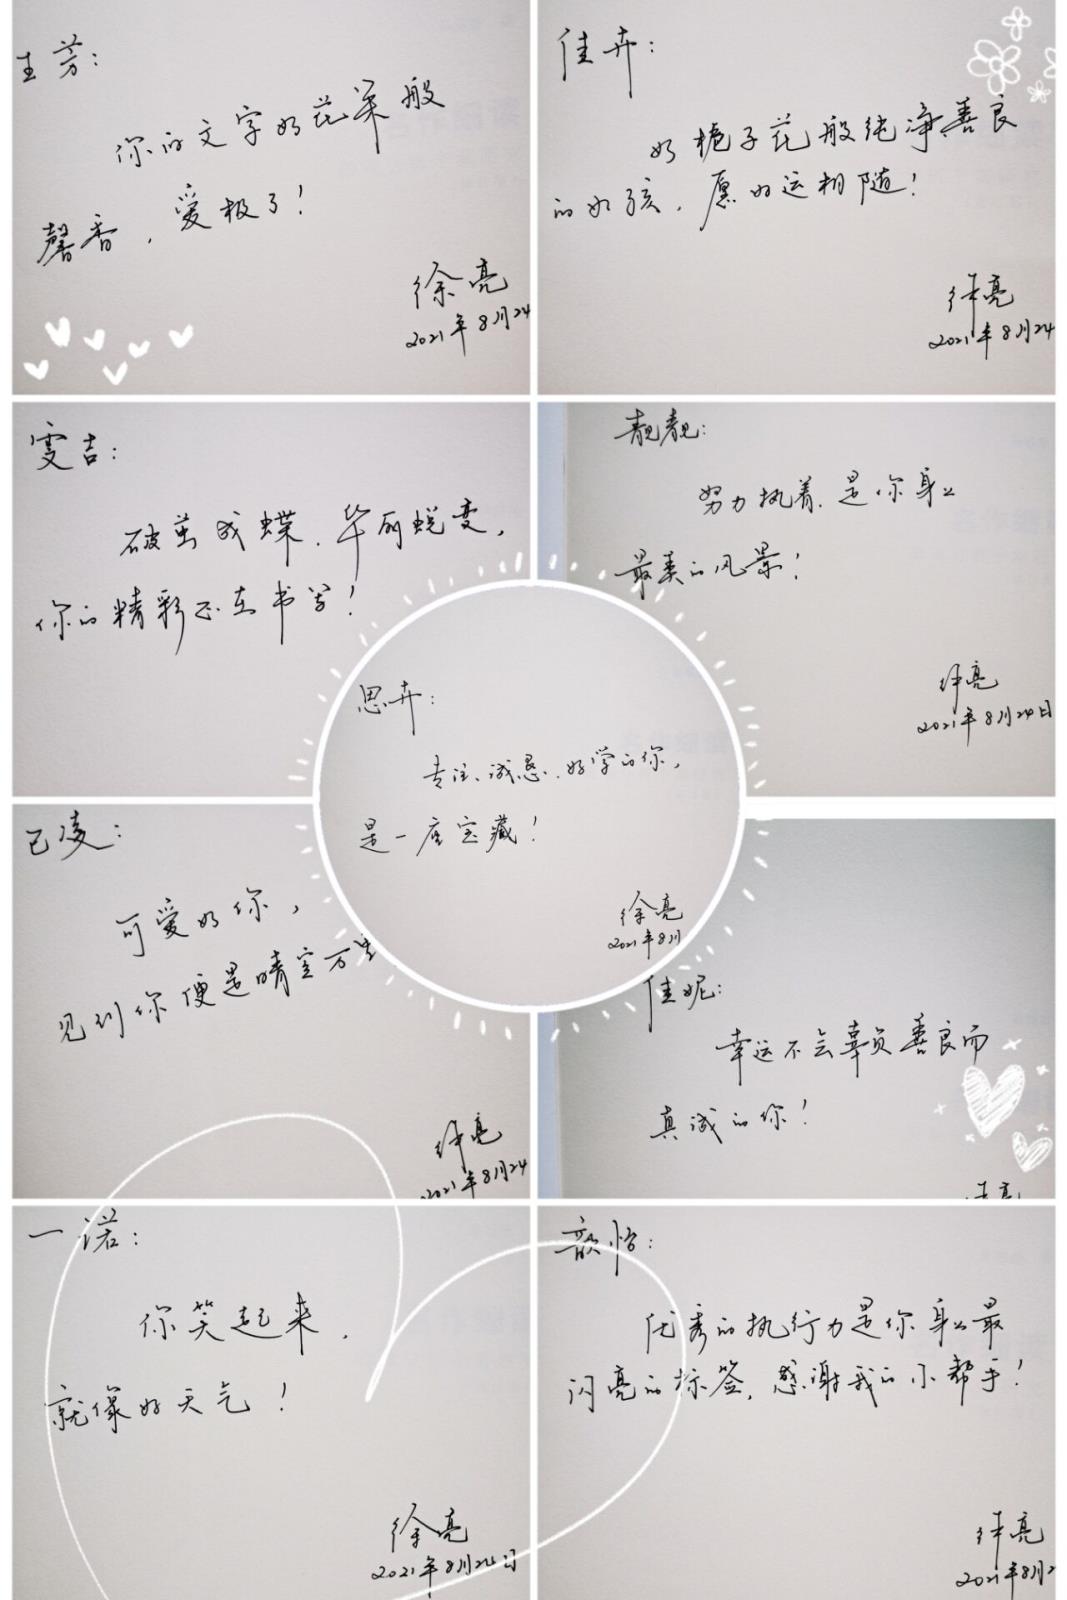 生芳：
你的文字如花朵般
馨香，爱极了！
徐亮
2021年8月24
佳卉：
如栀子花般纯净善良
的女孩，愿好运相随！
徐亮
2021年8月24
雯吉：
破茧成蝶、华丽蜕变，
你的精彩正在书写！
靓靓：
努力执着，是你身上
最美的风景！
徐亮
2021年8月24日
思卉：
专注、诚恳、好学的你，
是一座宝藏！
徐亮
2021年8月
已凌：
可爱如你，
见到你便是晴空万里
徐亮
2021年8月24
佳妮：
幸运不会辜负善良而
真诚的你！
徐亮
一诺：
你笑起来，
就像好天气！
徐亮
2021年8月24日
歆怡：
优秀的执行力是你身上最
闪亮的标签，感谢我的小帮手！
徐亮
2021年8月2